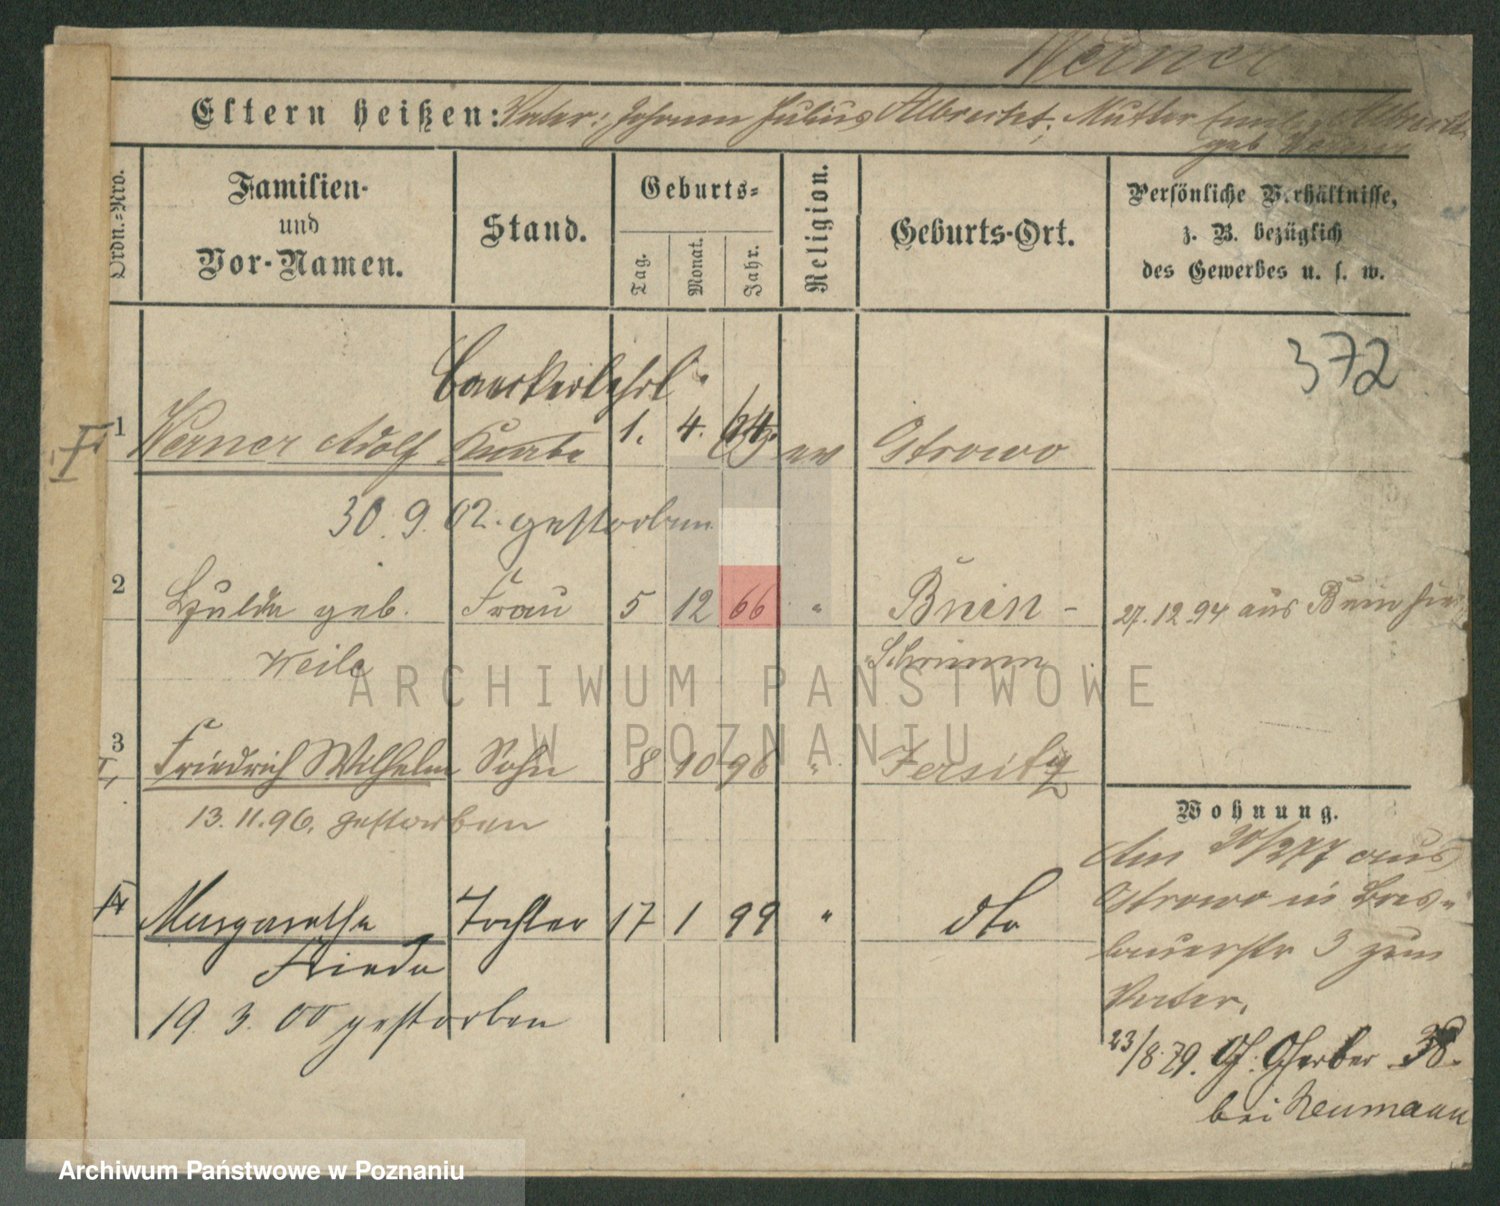 Werner
Eltern heißen: Vater: Johann Julius Albrecht, Mutter
geb Werner
Ordn.-Nro.
Familien- und Vor-Namen.
Stand.
Geburts-
Tag.
Monat.
Jahr.
Religion.
Geburts-Ort.
Persönliche Verhältnisse, z. B. bezüglich des Gewerbes u. s. w.
372
1 Werner Adolf Knabe 1. 4. 64 ev Ostrowo
30. 9. 02. gestorben
2 Hulda geb. Frau 5 12 66 " Bnin - 27. 12 94 aus Bnin
Weile Schrimm
3 Friedrich Wilhelm Sohn 8 10 96 " Jersitz
13. 11. 96. gestorben
Wohnung.
Am 20/2 77 aus
4 Margarethe Tochter 17 1 99 " dto
Ostrowo in
Frieda
3 zum
Vater.
19. 3. 00 gestorben
23/8. 79. Gr. Gerber 38.
bei Neumann
ARCHIWUM PAŃSTWOWE
W POZNANIU
Archiwum Państwowe w Poznaniu